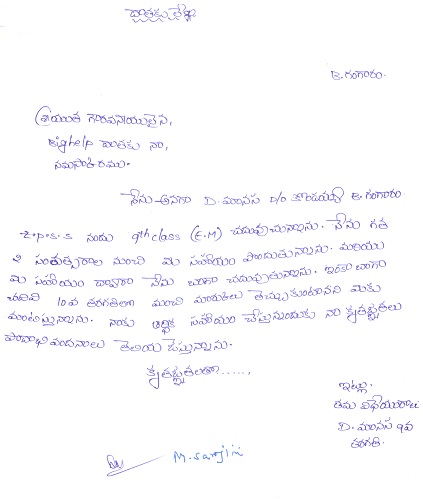 దాతకు లేఖ
B. గంగారం.
శ్రీయుత గౌరవనీయులైన,
Bighelp దాతకు నా,
నమస్కారము.
నేను అనగా D. మానస D/O కొండయ్య B. గంగారం
Z.P.S.S నందు 9th class (E.M) చదువుచున్నాను. నేను గత
2 సంవత్సరాల నుంచి మీ సహాయం పొందుతున్నాను. మరియు
మీ సహాయం ద్వారా నేను బాగా చదువుతున్నాను. ఇంకా బాగా
చదివి 10వ తరగతిలో మంచి మార్కులు తెచ్చుకుంటానని మీకు
మాటిస్తున్నాను. నాకు ఆర్థిక సహాయం చేస్తున్నందుకు నా కృతజ్ఞతలు
పాదాభివందనాలు తెలియ చేస్తున్నాను.
కృతజ్ఞతలతో......,
ఇట్లు.
తమ విధేయురాలు
D. మానస 9వ
తరగతి.
M. Sanjini